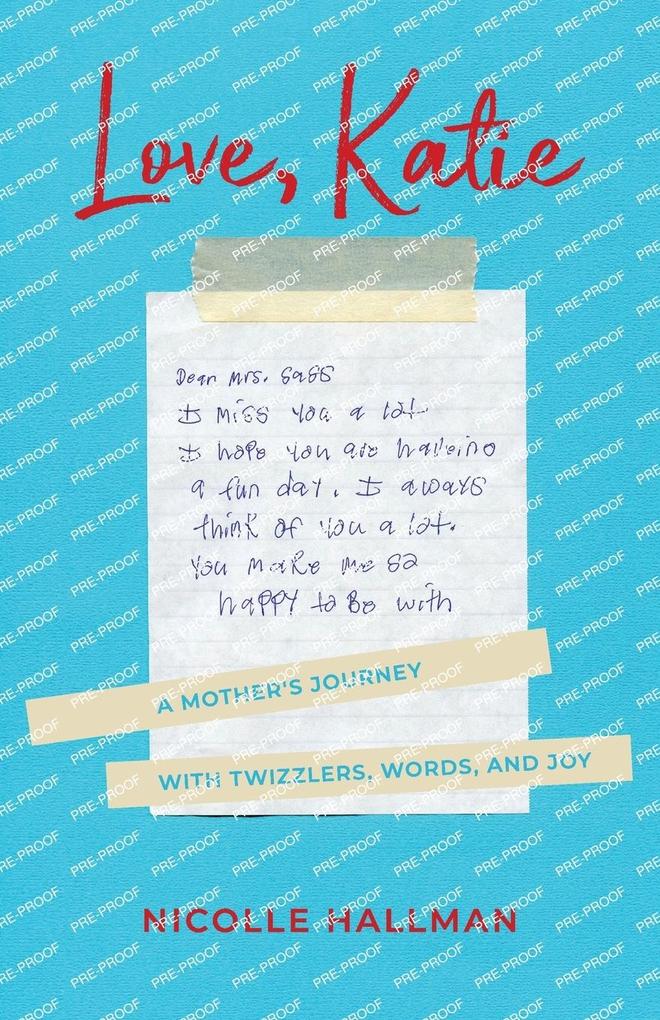 Love, Katie
Dear Mrs. Sass
I miss you a lot
I hope you are haveing
a fun day. I aways
think of you a lot.
You make me so
happy to Be with
A MOTHER'S JOURNEY
WITH TWIZZLERS, WORDS, AND JOY
NICOLLE HALLMAN
PRE-PROOF